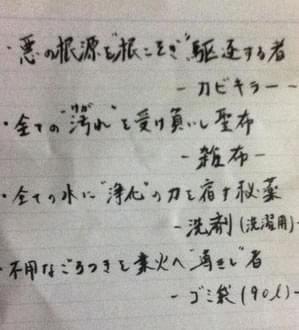 ・悪の根源を"根こそぎ"駆逐する者
- カビキラー -
・全ての"汚れ"を受け負いし聖布
けが
- 雑布 -
・全ての水に"浄化"の力を宿す秘薬
- 洗剤(洗濯用)
・不用なごろつきを業火へ"導きし"者
- ゴミ袋(90ℓ) -